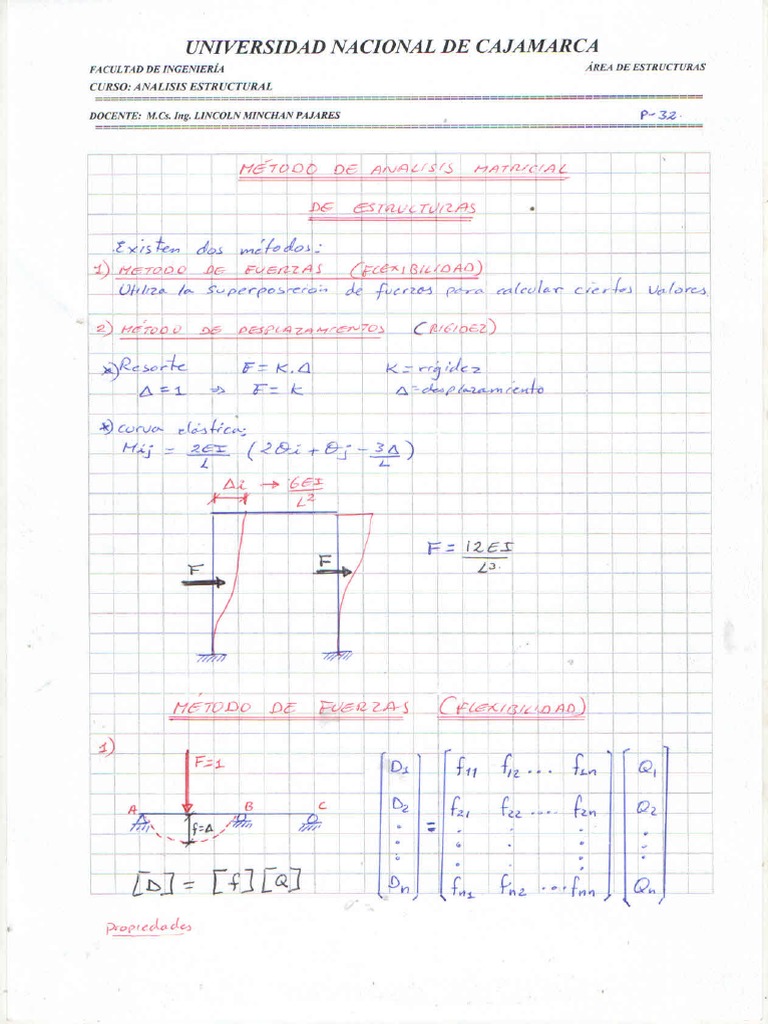 UNIVERSIDAD NACIONAL DE CAJAMARCA
FACULTAD DE INGENIERÍA ÁREA DE ESTRUCTURAS
CURSO: ANALISIS ESTRUCTURAL
DOCENTE: M.Cs. Ing. LINCOLN MINCHAN PAJARES P-32.
MÉTODO DE ANALISIS MATRICIAL
DE ESTRUCTURAS
Existen dos métodos:
1) METODO DE FUERZAS (FLEXIBILIDAD)
Utiliza la superposicion de fuerzas para calcular ciertos valores
2) MÉTODO DE DESPLAZAMIENTOS (RIGIDEZ)
*) Resorte F = K.Δ K = rigidez
Δ = 1 ⇒ F = K Δ = desplazamiento
*) curva elástica:
Mij = 2EI/L (2θi + θj - 3Δ/L)
Δi → 6EI/L²
F F F = 12EI/L³.
MÉTODO DE FUERZAS (FLEXIBILIDAD)
1)
F=1
A B C
f=Δ
D1 f11 f12 ... f1n Q1
D2 = f21 f22 .... f2n Q2
Dn fn1 fn2 ... fnn Qn
[D] = [f][Q]
Propiedades